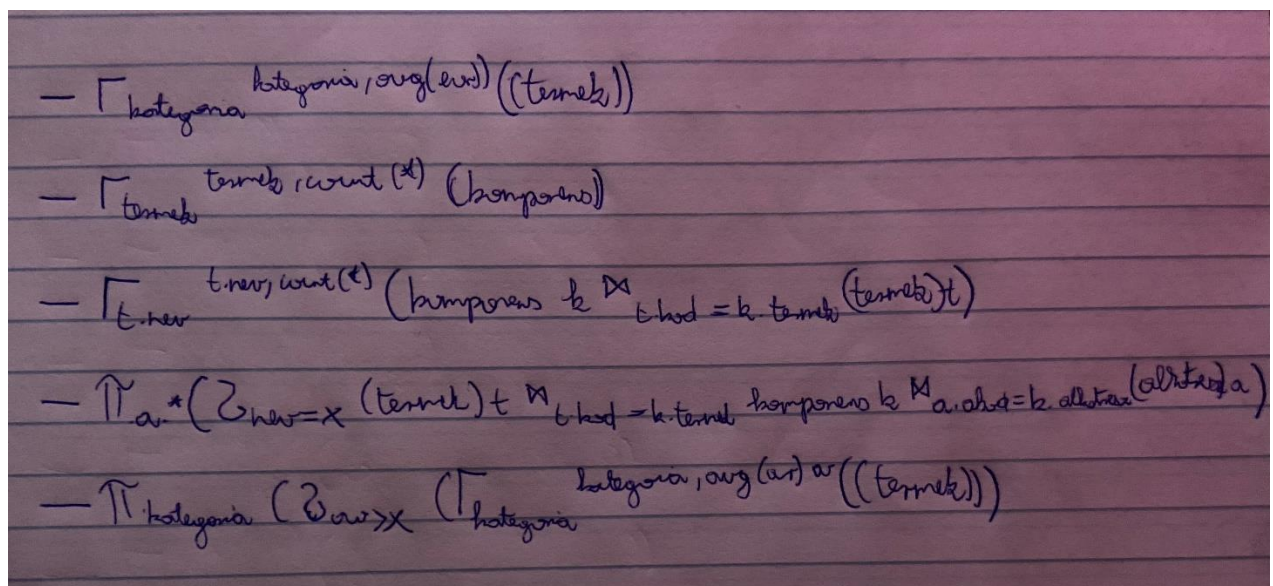 — Γ kategoria kategoria, avg(ar)) ((termek))
— Γ termek termek, count(*) (komponens))
— Γ t.nev t.nev, count(*) (komponens k ⋈ t.kod = k.termek (termek)t)
— π a.* (σ nev=x (termek) t ⋈ t.kod = k.termek komponens k ⋈ a.akod = k.alkatresz (alkatresz) a)
— π kategoria (σ av>x (Γ kategoria kategoria, avg(ar) av ((termek)))